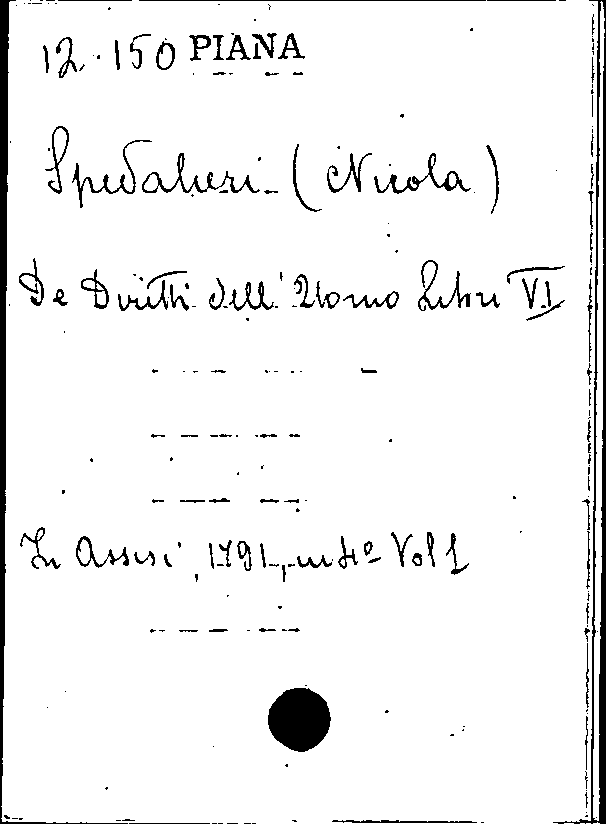 12.150 PIANA
Spedalieri (Nicola)
De Diritti dell'Uomo Libri VI
In Assisi, 1791, in 4º Vol 1